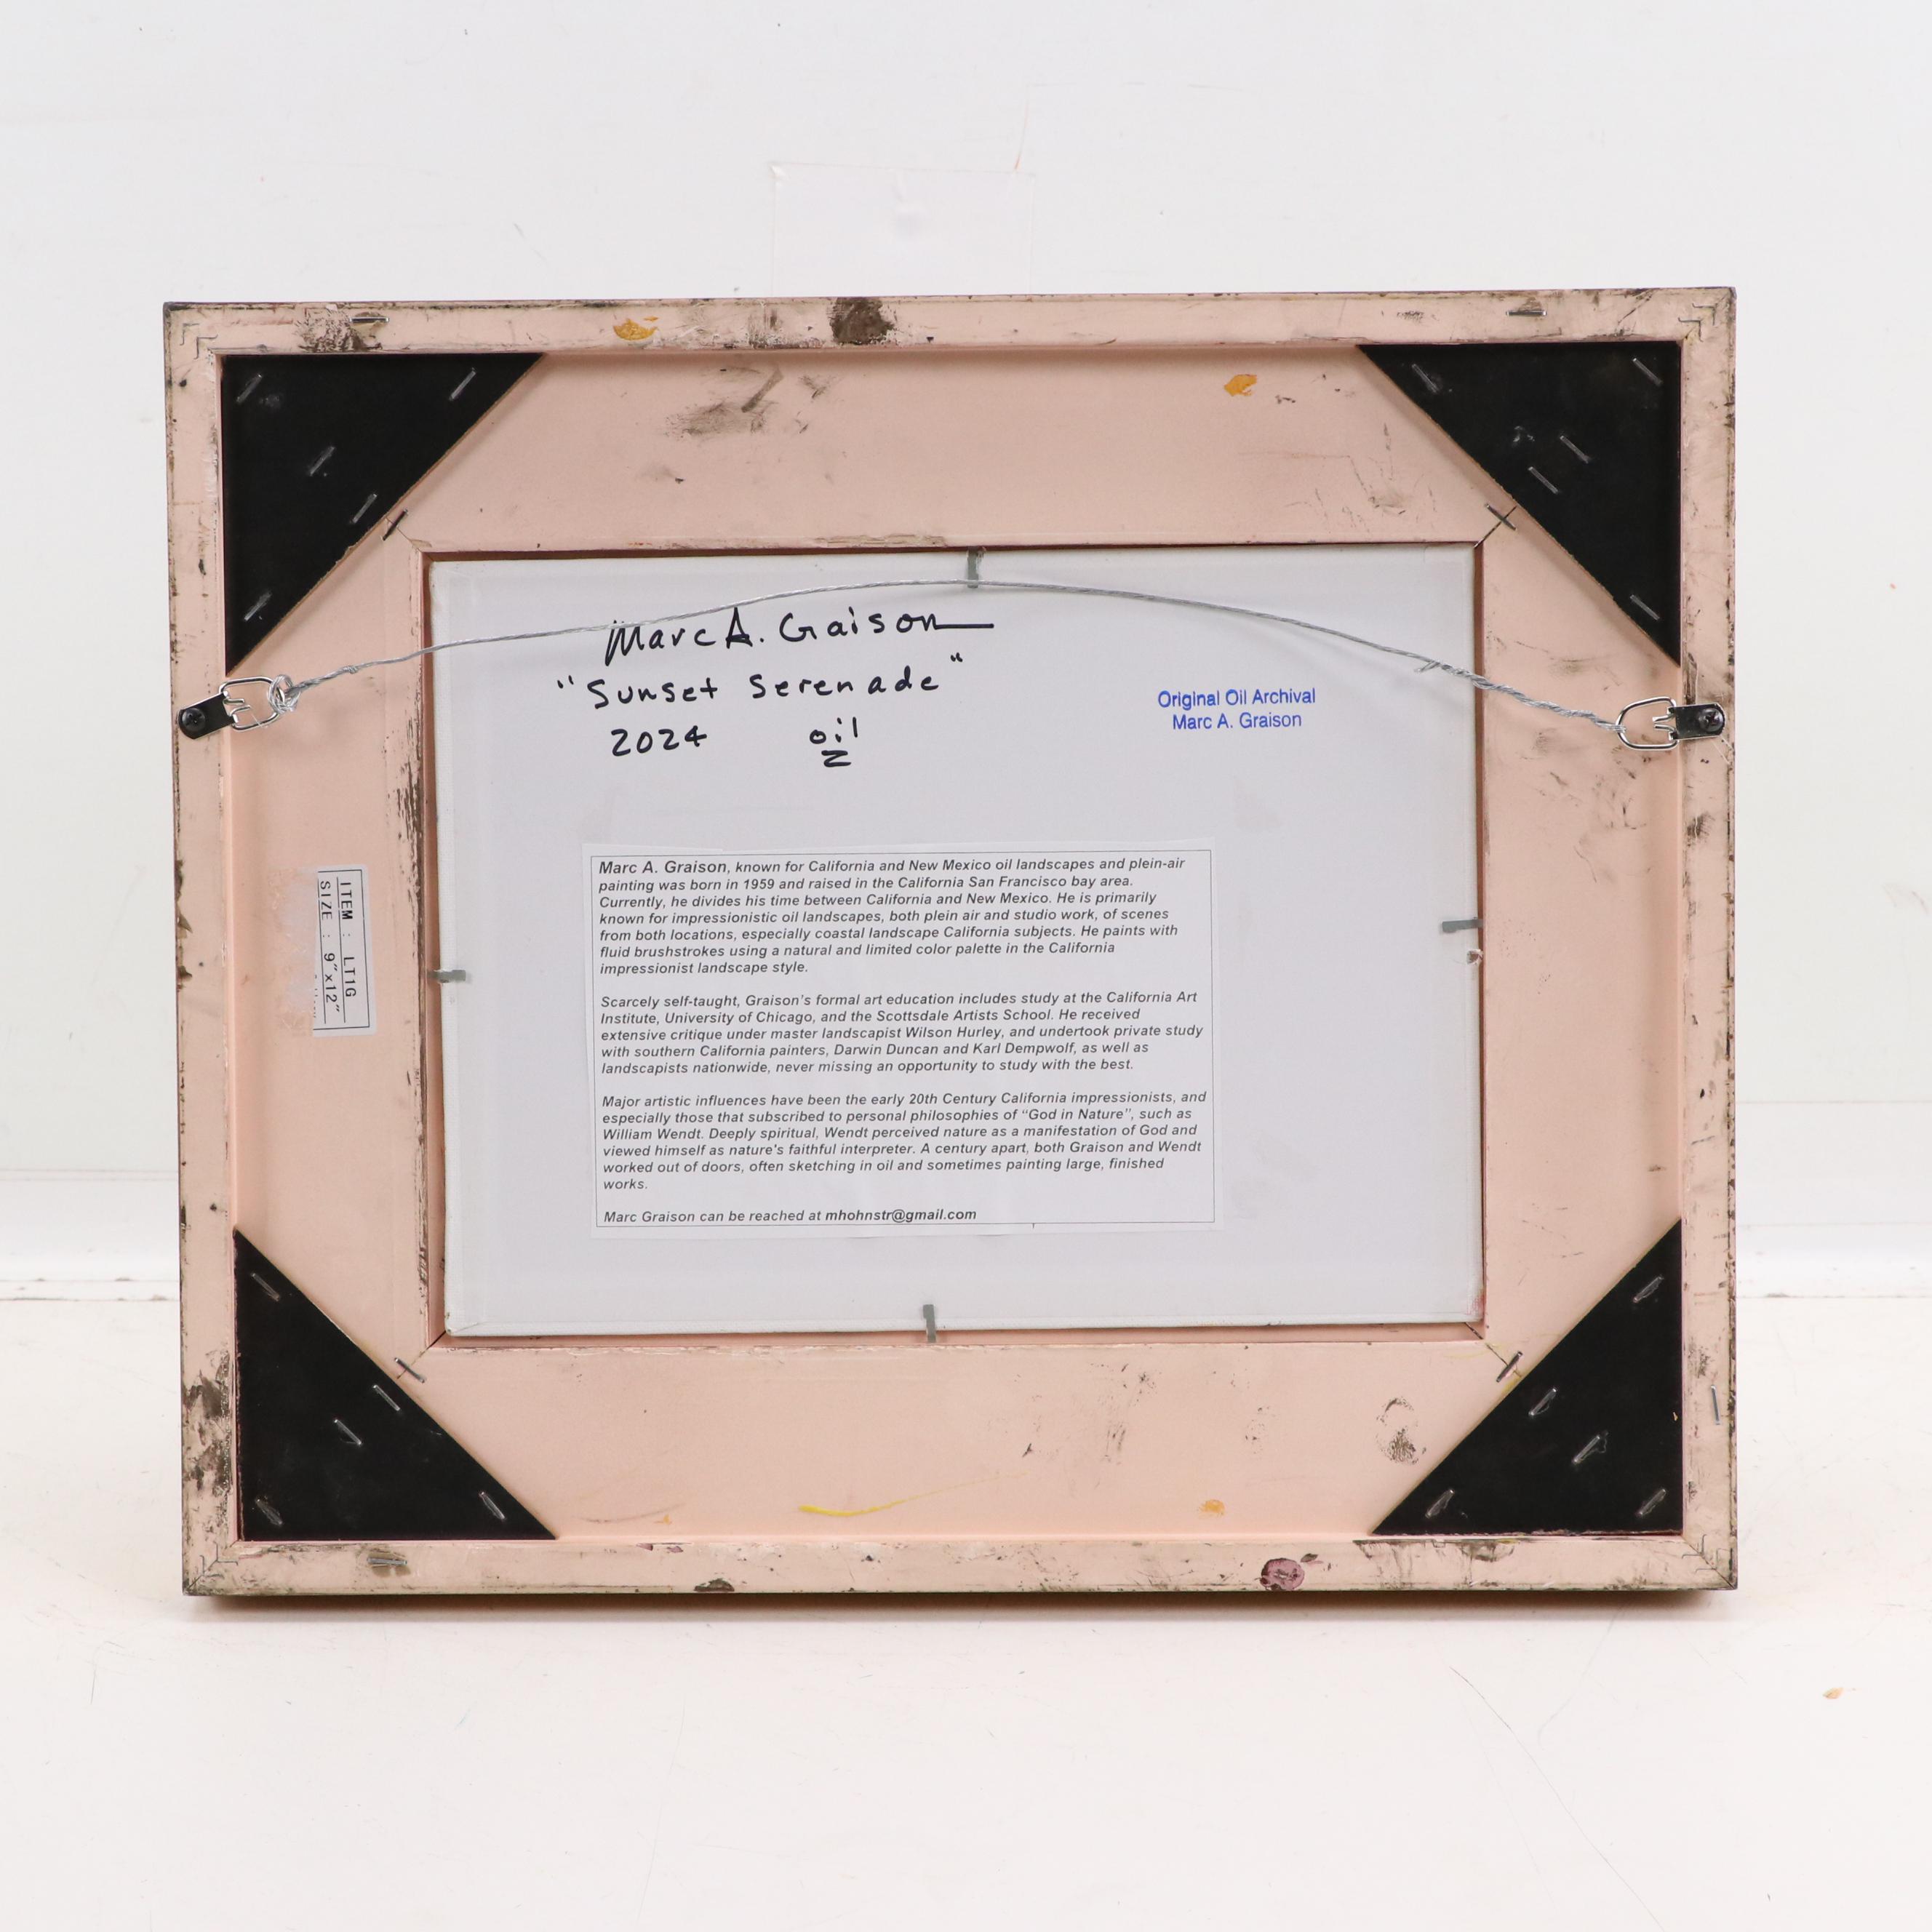 Marc A. Graison
"Sunset Serenade"
2024 oil
Original Oil Archival
Marc A. Graison
ITEM : LT1G
SIZE : 9"x12"
Marc A. Graison, known for California and New Mexico oil landscapes and plein-air
painting was born in 1959 and raised in the California San Francisco bay area.
Currently, he divides his time between California and New Mexico. He is primarily
known for impressionistic oil landscapes, both plein air and studio work, of scenes
from both locations, especially coastal landscape California subjects. He paints with
fluid brushstrokes using a natural and limited color palette in the California
impressionist landscape style.
Scarcely self-taught, Graison's formal art education includes study at the California Art
Institute, University of Chicago, and the Scottsdale Artists School. He received
extensive critique under master landscapist Wilson Hurley, and undertook private study
with southern California painters, Darwin Duncan and Karl Dempwolf, as well as
landscapists nationwide, never missing an opportunity to study with the best.
Major artistic influences have been the early 20th Century California impressionists, and
especially those that subscribed to personal philosophies of “God in Nature”, such as
William Wendt. Deeply spiritual, Wendt perceived nature as a manifestation of God and
viewed himself as nature's faithful interpreter. A century apart, both Graison and Wendt
worked out of doors, often sketching in oil and sometimes painting large, finished
works.
Marc Graison can be reached at mhohnstr@gmail.com